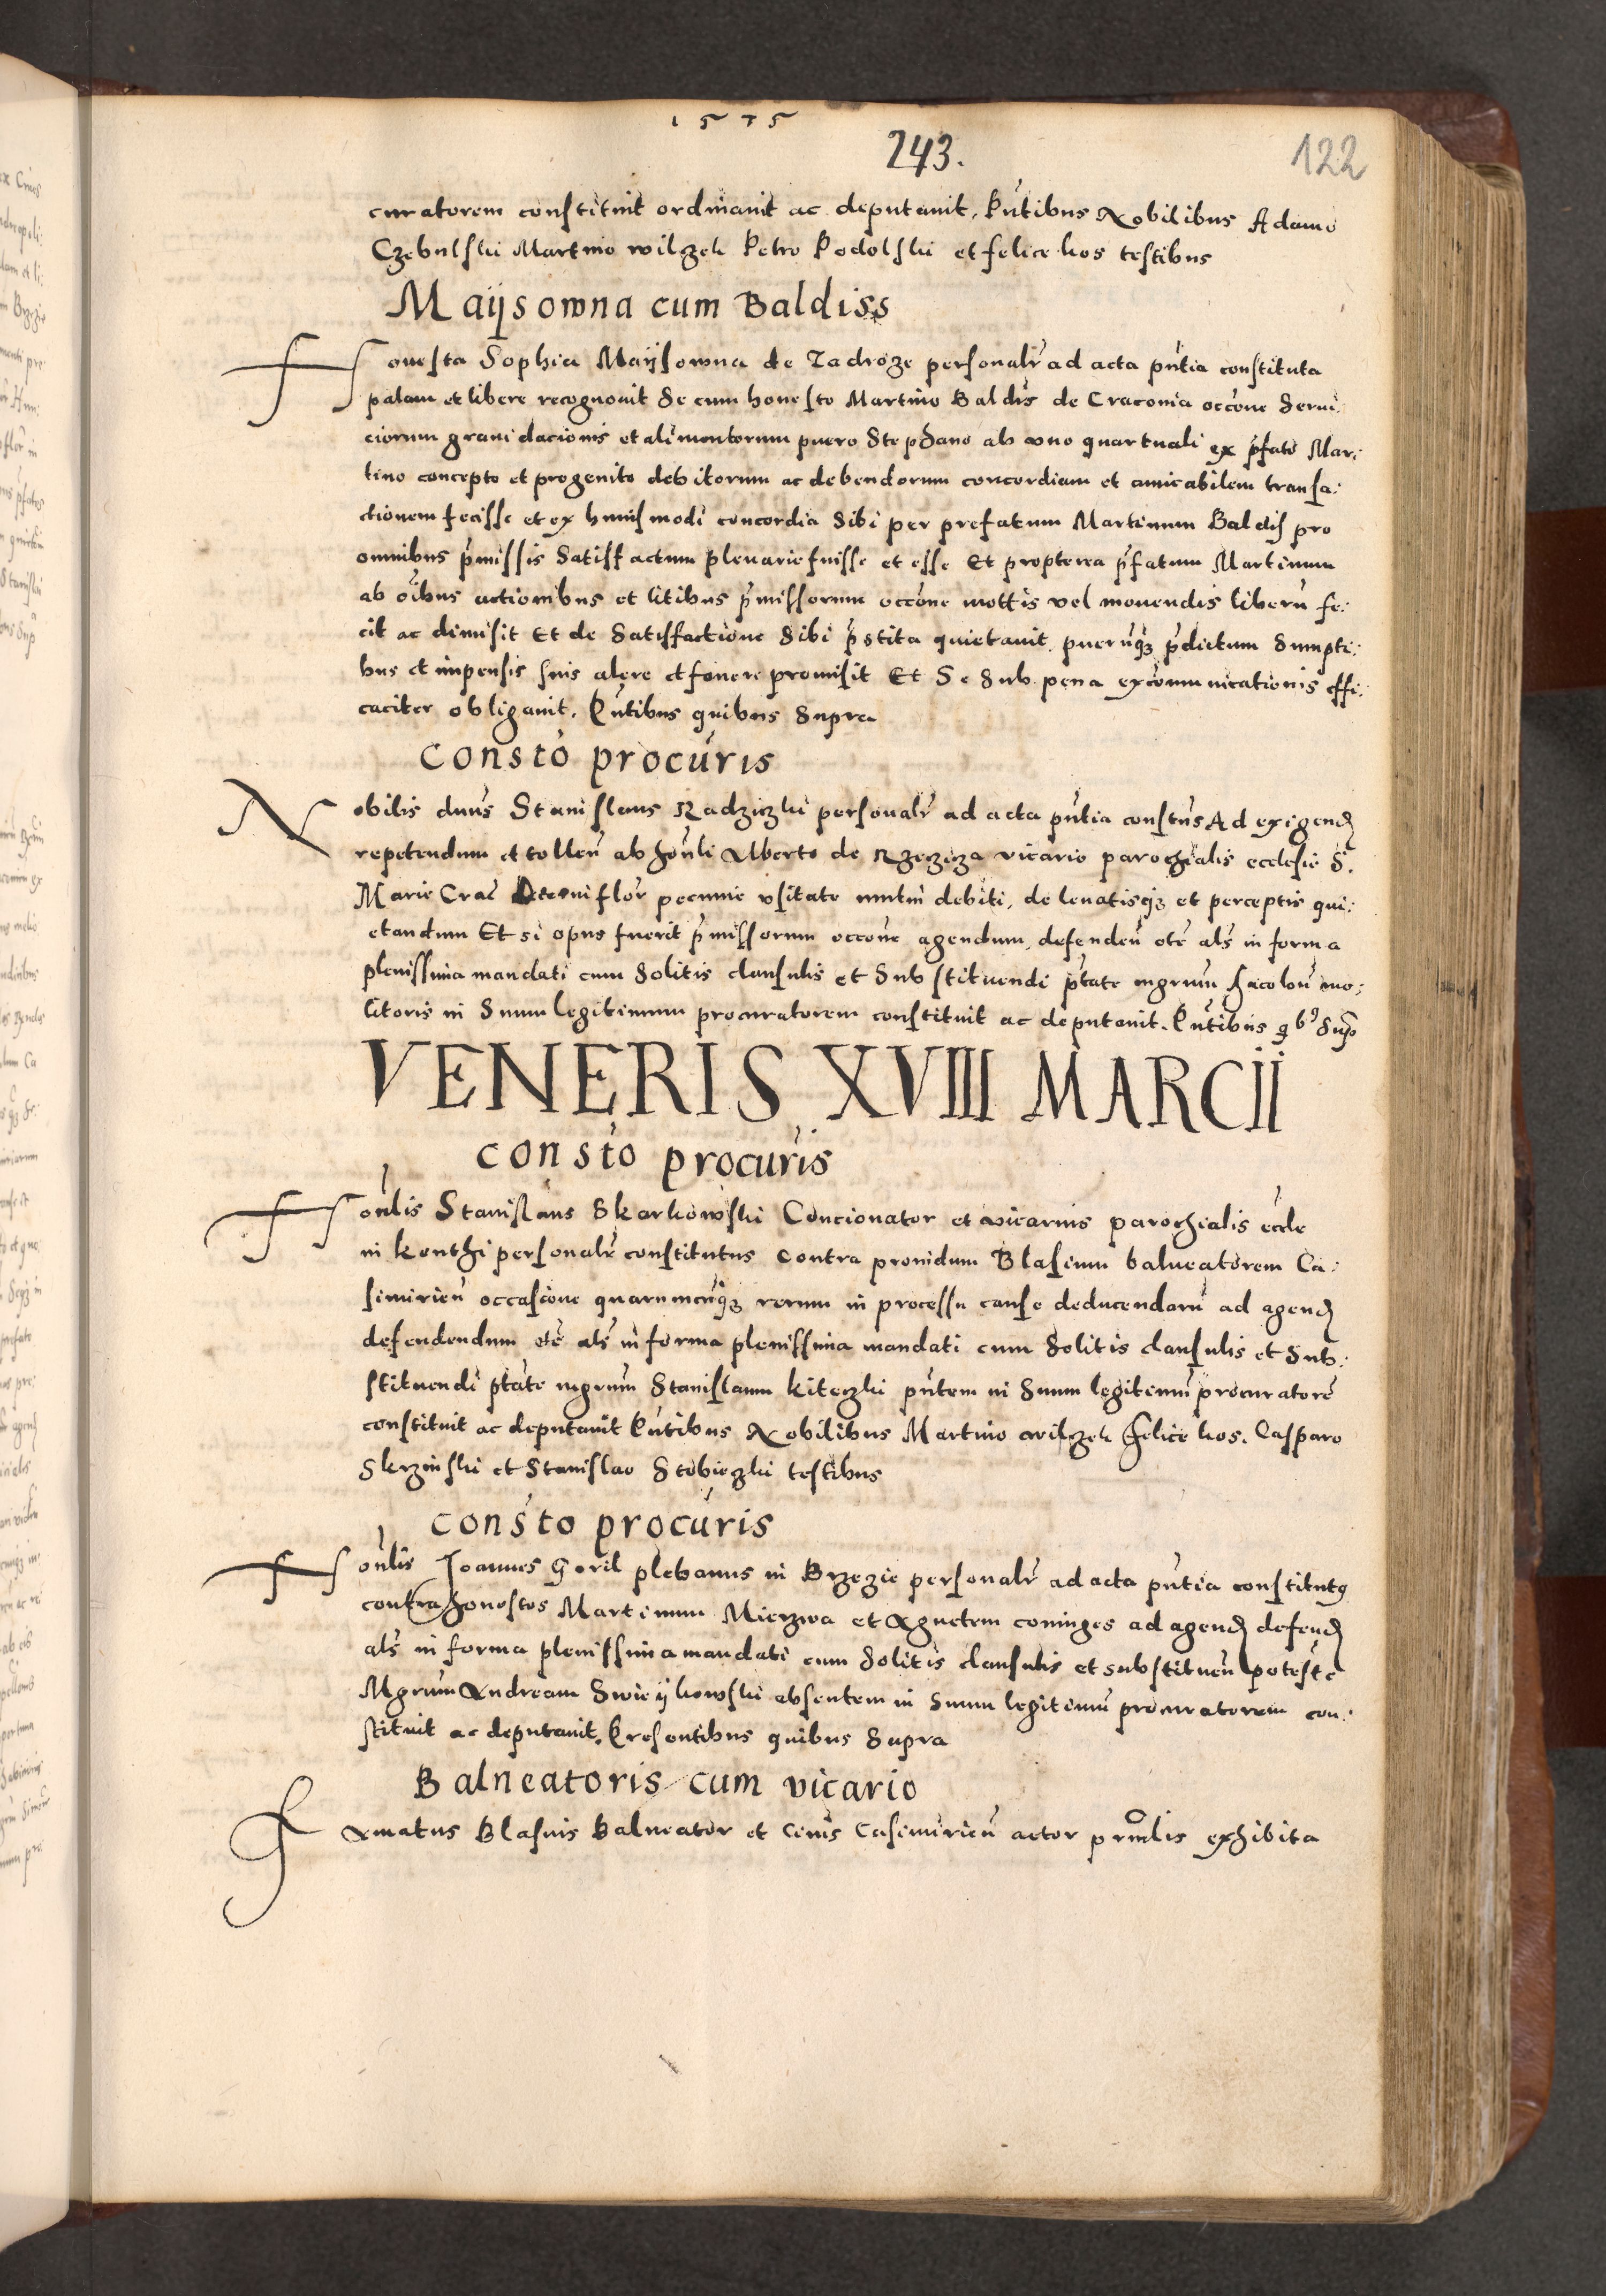 1575
243.
122
curatorem constituit ordinavit ac deputavit. Pñtibus Nobilibus Adamo
Czebulski Martino wilczek Petro Podolski et felice kos testibus
Maijsowna cum Baldiss
Honesta Sophia Maijsowna de Zadroze personalr ad acta pñtia constituta
palam et libere recognovit Se cum honesto Martino Baldis de Cracovia occõne Servi:
ciorum gravidacionis et alimentorum puero Stephano ab uno quartuali ex pfato Mar:
tino concepto et progenito debitorum ac debendorum concordiam et amicabilem transa:
ctionem fecisse et ex huiusmodi concordia Sibi per prefatum Martinum Baldis pro
omnibus pmissis Satisfactum plenarie fuisse et esse Et propterea pfatum Martinum
ab oibus actionibus et litibus pmissorum occõne mottis vel movendis liberũ fe:
cit ac dimisit Et de Satisfactione Sibi pstita quietavit puerũqz pdictum Sumpti:
bus et impensis suis alere et fovere promisit Et Se Sub pena excõmunicationis effi:
caciter obligavit. Pñtibus quibus Supra
Consto procuris
Nobilis dnus Stanislaus Radziczki personalr ad acta pñtia constus Ad exigend
repetendum et tolleñ ab honli Alberto de Rzeczicza vicario parochialis ecclesie S.
Marie Crac flor pecunie usitate mutui debiti, de levatisqz et perceptis qui:
etandum Et si opus fuerit pmissorum occõne agendum, defendeñ etc als in forma
plenissima mandati cum Solitis clausulis et Substituendi ptate mgrum Jacobum mo:
litoris in Suum legitimum procuratorem constituit ac deputavit. Pñtibus qb9 Supra
VENERIS XVIII MARCII
Consto procuris
Honlis Stanislaus Skarkowski Concionator et vicarius parochialis eccle
in Kenthi personalr constitutus Contra providum Blasium balneatorem Ca:
simirieñ occasione quarumcuqz rerum in processu cause deducendarũ ad agend
defendendum etc als in forma plenissima mandati cum Solitis clausulis et Sub:
stituendi ptate mgrum Stanislaum Kiteczki pñtem in Suum legitimũ procuratorẽ
constituit ac deputavit Pñtibus Nobilibus Martino wilczek felice kos. Casparo
Skrzinski et Stanislao Stobieczki testibus
Consto procuris
Honlis Joannes Goril plebanus in Brzezie personalr ad acta pñtia constitut9
contra honestos Martinum Mierzwa et Agnetem coniuges ad agend defend
als in forma plenissima mandati cum Solitis clausulis et substitueñ potestẽ
Mgrum Andream Swieijkowski absentem in Suum legitimũ procuratorem con:
stituit ac deputavit. Presentibus quibus Supra
Balneatoris cum vicario
Famatus Blasius Balneator et Civis Casimirieñ actor prinlis exhibita